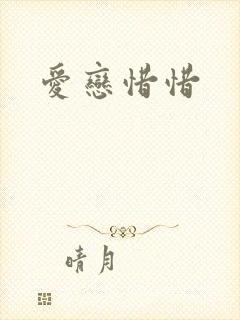 愛戀惜惜
晴月